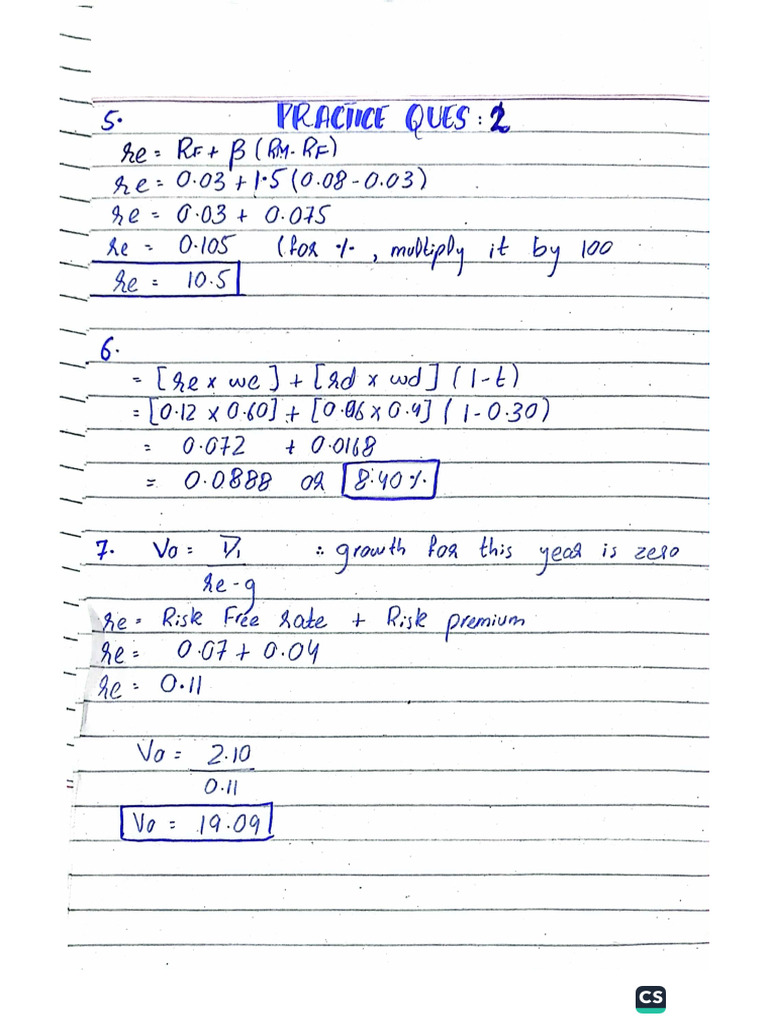 5. PRACTICE QUES: 2
re = RF + β (RM - RF)
re = 0.03 + 1.5 (0.08 - 0.03)
re = 0.03 + 0.075
re = 0.105 (for %, multiply it by 100
re = 10.5
6.
= [re x we] + [rd x wd] (1-t)
= [0.12 x 0.60] + [0.06 x 0.4] (1-0.30)
= 0.072 + 0.0168
= 0.0888 or 8.40 %
7. Vo = D1 ∴ growth for this year is zero
re - g
re = Risk Free rate + Risk premium
re = 0.07 + 0.04
re = 0.11
Vo = 2.10
0.11
Vo = 19.09
CS